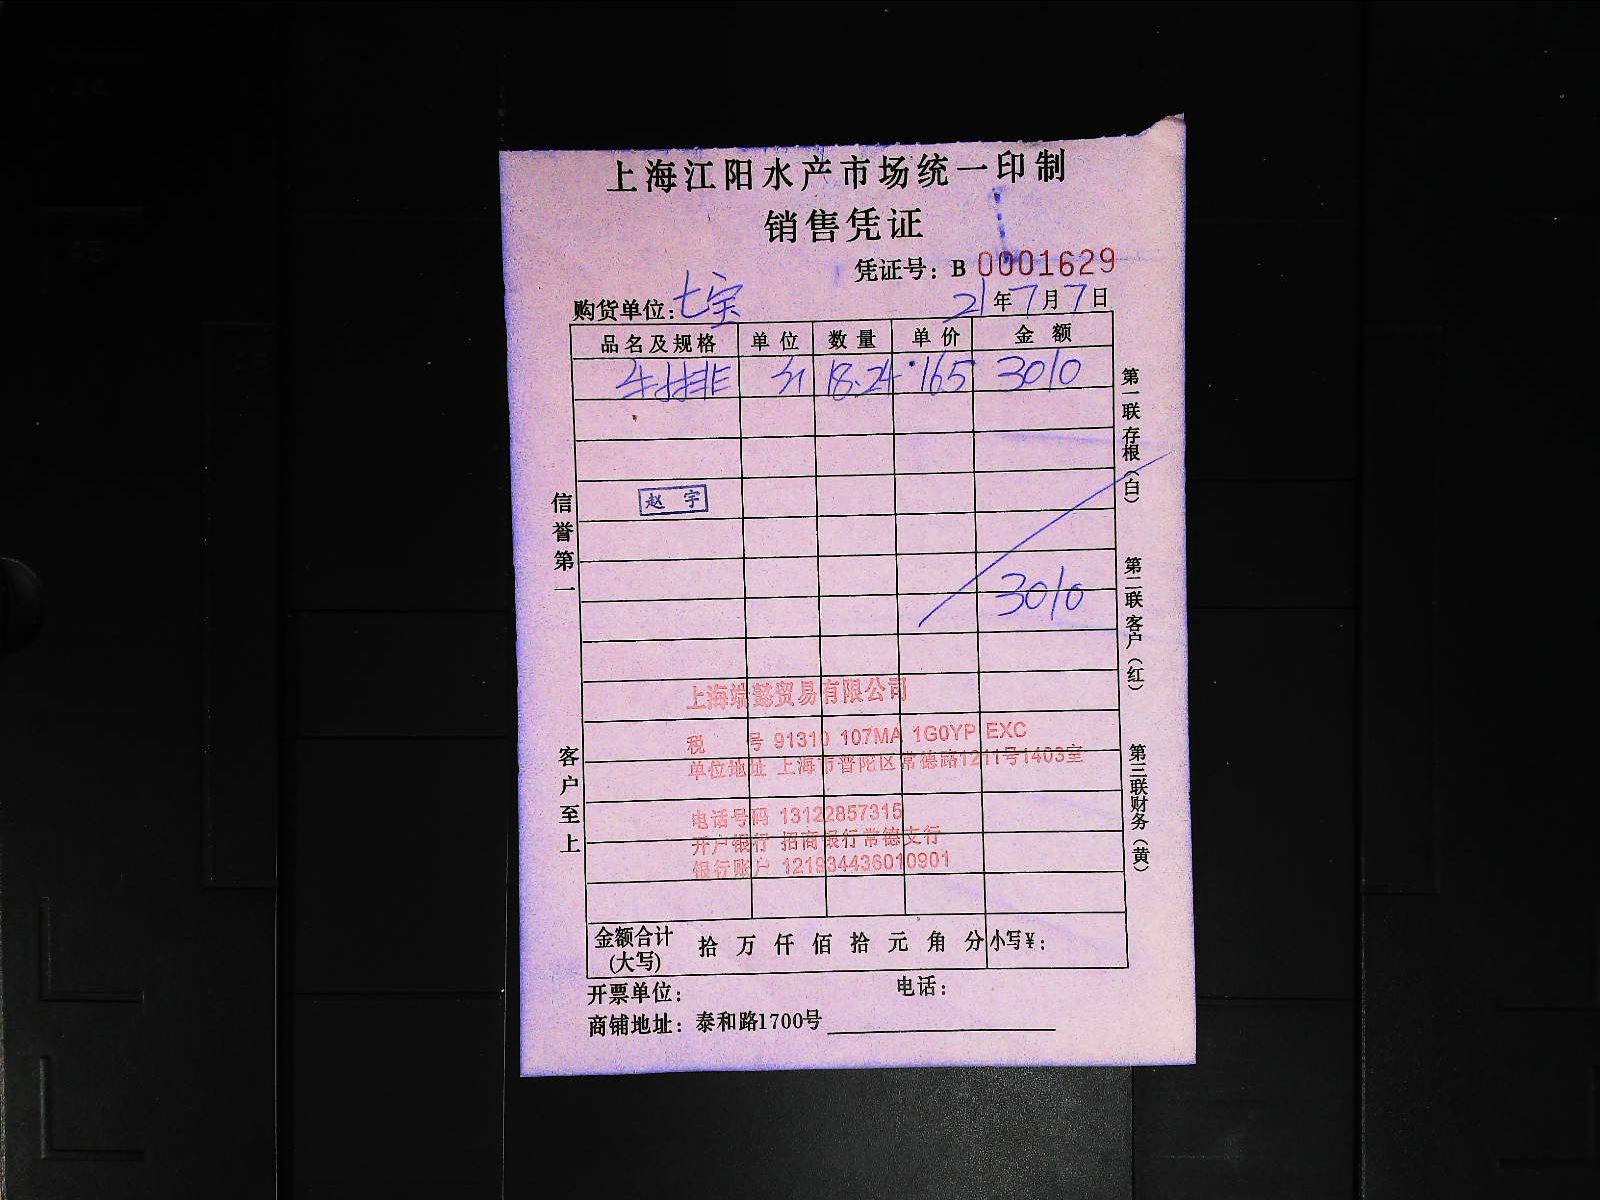 上海江阳水产市场统一印制
销售凭证
凭证号：B 0001629
购货单位：七宝 21年7月7日
品名及规格 单位 数量 单价 金额
牛排 18.24 165 3010
赵宇
3010
上海端懿贸易有限公司
税 号 91310 107MA 1G0YP EXC
单位地址 上海市普陀区常德路1211号1403室
电话号码 13122857315
开户银行 招商银行常德支行
银行账户 121934436010901
金额合计(大写) 拾 万 仟 佰 拾 元 角 分 小写¥：
开票单位： 电话：
商铺地址：泰和路1700号
信誉第一
客户至上
第一联存根（白）
第二联客户（红）
第三联财务（黄）